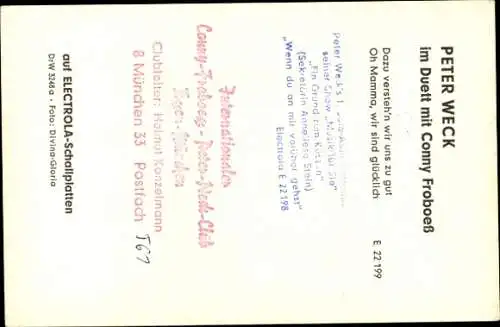 PETER WECK
im Duett mit Conny Froboeß
Dazu versteh'n wir uns zu gut
Oh Mamma, wir sind glücklich
E 22 199
Peter Weck's 1.
seiner Show „Musik für Sie"
„Ein Grund zum Küssen"
(Sekretärin Anneliese Stein)
„Wenn du an mir vorüber gehst"
Electrola E 22 198
Internationaler
Conny-Froboess-Peter-Weck-Club
München
Clubleiter: Helmut Konzelmann
8 München 33 Postfach 761
auf ELECTROLA-Schallplatten
DrW 3248a · Foto: Divina-Gloria